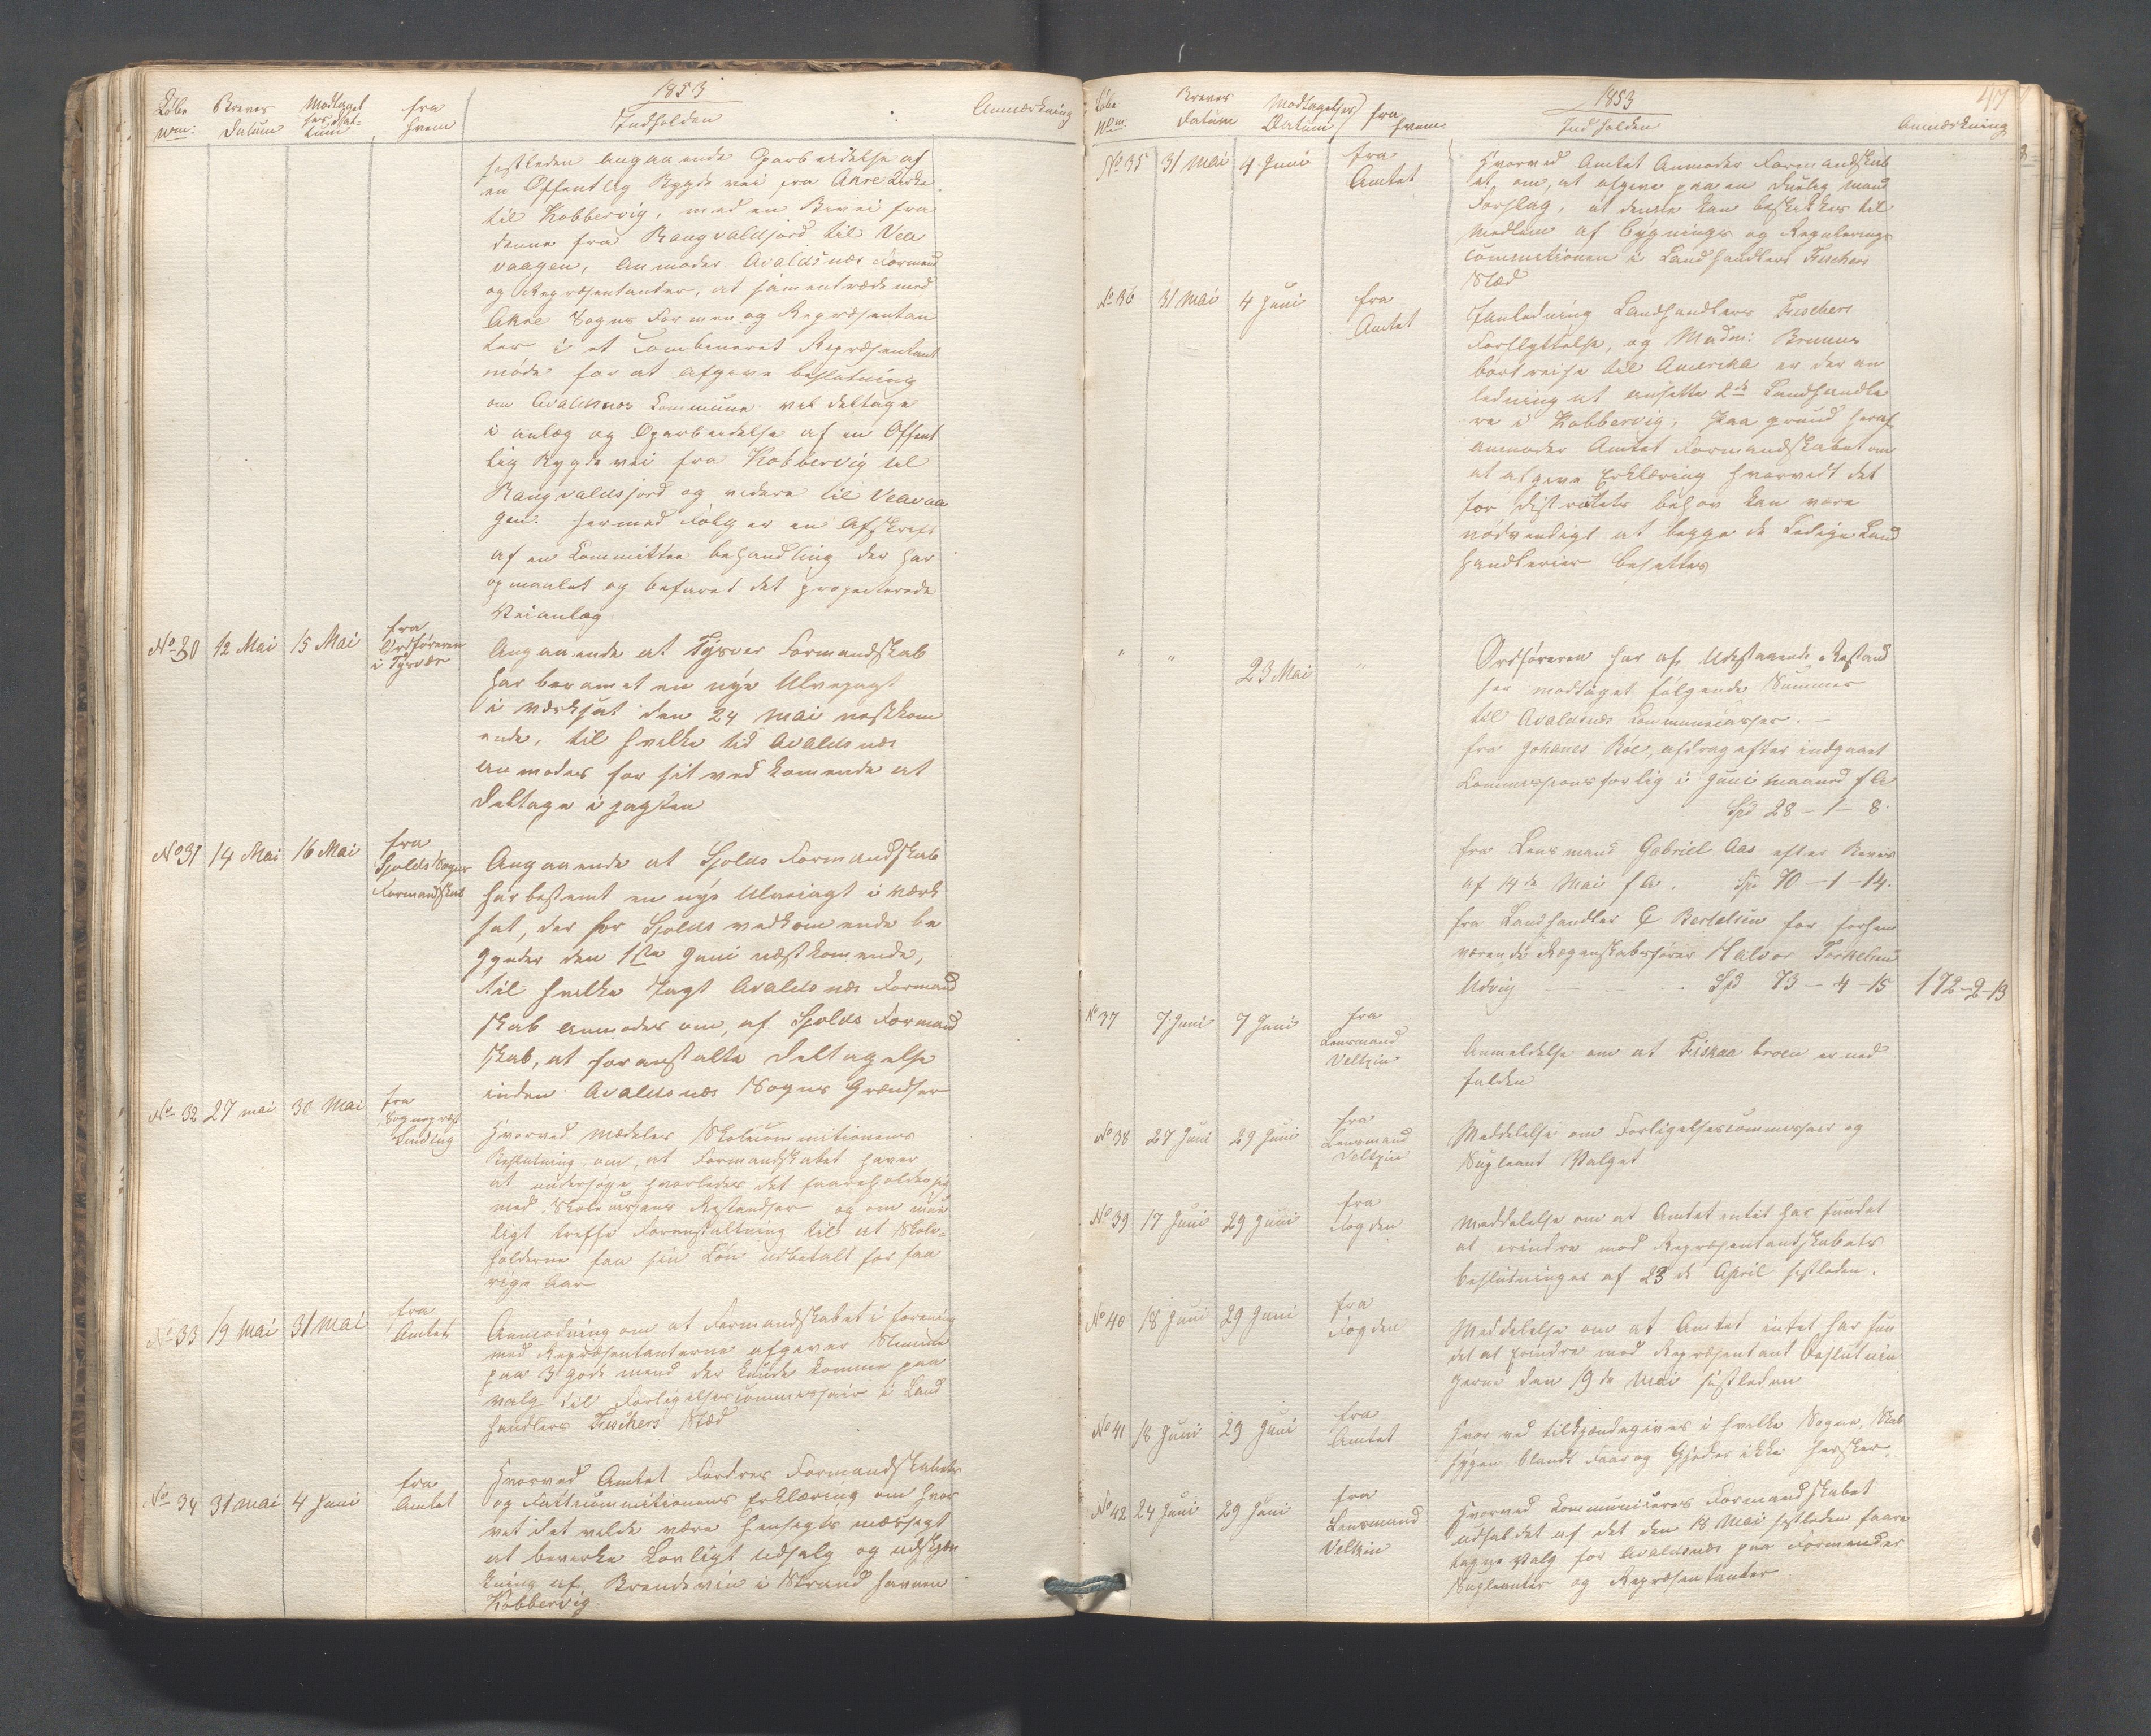 1853
Løbe Brevets Modtagel fra Indholden Anmærkning
Nrm: Datum ses Dat hvem
tum
sistleden angaaende Oparbeidelse af
en Offentlig Bygde vei fra Akre Kirke
til Kobbervig, med en Bivei fra
denne fra Rangvaldsjord til Vea
vaagen, Anmoder Avaldsnæs Formænd
og Repræsentanter, at sammentræde med
Akre Sogns Formen og Repræsentan
ter i et Combineret Repræsentant
møde for at afgive beslutning
om Avaldsnæs Commune vil deltage
i anlæg og Oparbeidelse af en Offent
lig Bygde vei fra Kobbervig til
Rangvaldsjord og videre til Veavaa
gen. Hermed Følger en Afskrift
af en Committee behandling der har
opmaalet og befaret det projecterede
Veianlæg
No 30 12 Mai 15 Mai fra Ordføreren i Tysvær
Angaaende at Tysver Formandskab
har beramet en nye Ulvejagt
i værksat den 24 Mai nestkom
ende, til hvilke tid Avaldsnæs
anmodes for sit ved komende at
deltage i jagten
No 31 14 Mai 16 Mai fra Sjolds Sogns Formandskab
Angaaende at Sjolds Formandskab
har bestemt en nye Ulvejagt i værk
sat, der for Sjolds vedkomende be
gynder den 1ste Juni næstkomende,
til hvilke Jagt Avaldsnæs Formand
skab anmodes om, af Sjolds Formand
skab, at foranstalte deltagelse
inden Avaldsnæs Sogns Grændser
No 32 27 mai 30 Mai fra Sognepræst Sinding
Hvorved Meddeles Skolecommitionens
Beslutning om, at Formandskabet haver
at undersøge hvorledes det forholder sig
med Skolecassens Restandser og om mue
ligt treffe Foranstaltning til at Skole-
holderne faa sin Løn udbetalt for faa
rige Aar
No 33 19 Mai 31 Mai fra Amtet
Anmodning om at Formandskabet i forening
med Repræsentanterne afgiver Stemme
paa 3 gode mend der kunde komme paa
valg til Forligelsescommissair i Land
handlers Fischers Sted
No 34 31 Mai 4 Juni fra Amtet
Hvorved Amtet Fordrer Formandskabets
og Fattiicommitionens Erklæring om hvor
vit det vilde være hensigts mæssigt
at bevirke Lovligt udsalg og udskjæn
kning af Brendevin i Strand havnen
Kobbervig
47
1853
Løbe Brevets Modtagelses fra Indholden Anmærkning
Nrm Datum Datum hvem
No 35 31 Mai 4 Juni fra Amtet
Hvorved Amtet Anmoder Formandskab
et om, at afgive paa en Duelig Mand
Forslag, at denne kan beskikkes til
Medlem af bygnings og Regulerings
Commitionen i Landhandlers Fischers
Sted
No 36 31 Mai 4 Juni fra Amtet
I anledning Landhandlers Fischers
Forflyttelse, og Madm: Bruuns
bortreise til Amerika er der an
ledning at ansette 2de Landhandle
re i Kobbervig, Paa grund heraf
anmoder Amtet Formandskabet om
at afgive Erklæring hvorvidt det
for distriktets behov kan være
nødvendigt at begge de Ledige Land
handlerier besættes
" " 23 Mai "
Ordføreren har af Udestaaende Restand
ser modtaget følgende Summer
til Avaldsnæs Communecasse. –
fra Johanes Bøe, afdrag efter indgaaet
Commissionsforlig i Juni maaned f A
Spd 28 – 1 – 8.
fra Lensmand Gabriel Aas efter Bevis
af 14de Mai f A. Spd 70 – 1 – 14.
fra Landhandler C Bertelsen for forhen
værende Regenskabsfører Halvor Torkelsen
Udvig – – – . Spd 73 – 4 – 15 172–2–13
No 37 7 Juni 7 Juni fra Lensmand Veltzin
Anmeldelse om at Fiskaa broen er ned
falden
No 38 27 Juni 29 Juni fra Lensmand Veltzin
Meddelelse om Forligelsescommissair og
Supleant Valget
No 39 17 Juni 29 Juni fra Fogden
Meddelelse om at Amtet intet har fundet
at erindre mod Repræsentantskabets
beslutninger af 23de April sistleden.
No 40 18 Juni 29 Juni fra Fogden
Meddelelse om at Amtet intet har fun
det at erindre mod Repræsentant beslutnin
gerne den 19de Mai sistleden
No 41 18 Juni 29 Juni fra Amtet
Hvor ved tilkjendegives i hvilke Sogne Skab
sygen blandt Faar og Gjeder ikke hersker.
No 42 24 Juni 29 Juni fra Lensmand Veltzin
Hvorved Communiceres Formandskabet
udfaldet af det den 18 Mai sistleden faare
tagne Valg for Avaldsnæs paa Formænder
Supleanter og Repræsentanter